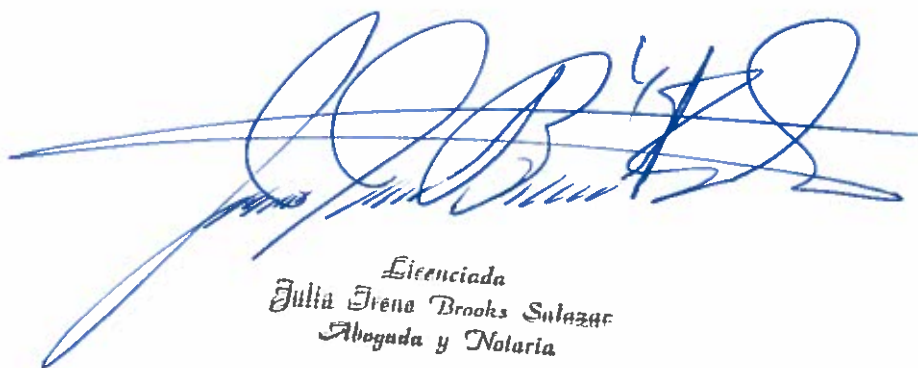 Licenciada
Julia Irene Brooks Salazar
Abogada y Notaria